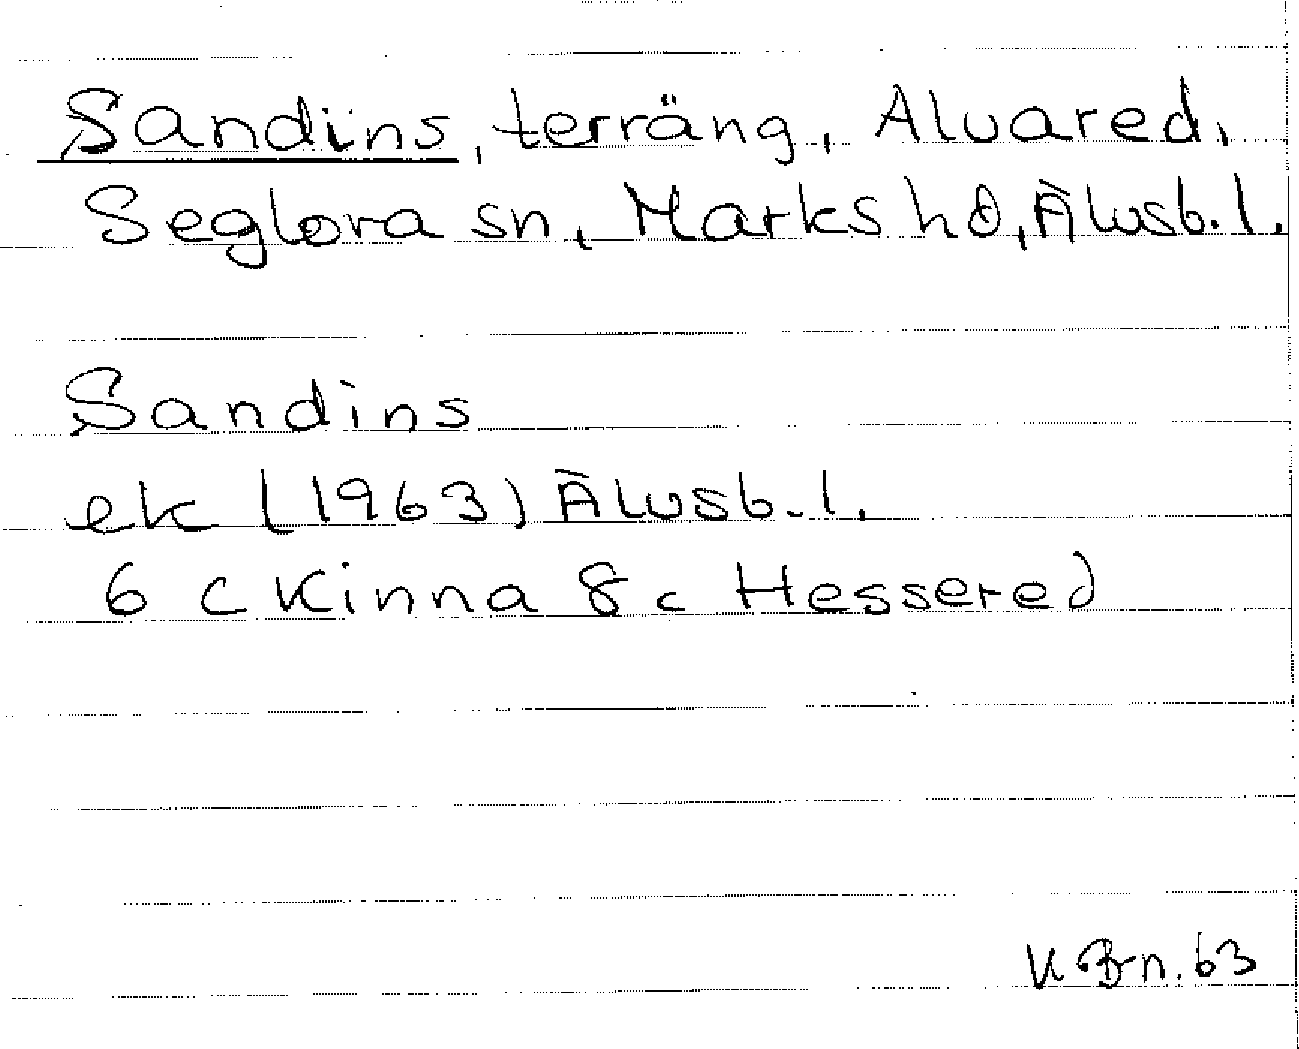 Sandins, terräng, Alvared,
Seglora sn, Marks hd, Älvsb. l.
Sandins
ek (1963) Älvsb. l.
6 c Kinna 8 c Hessered
n. 63